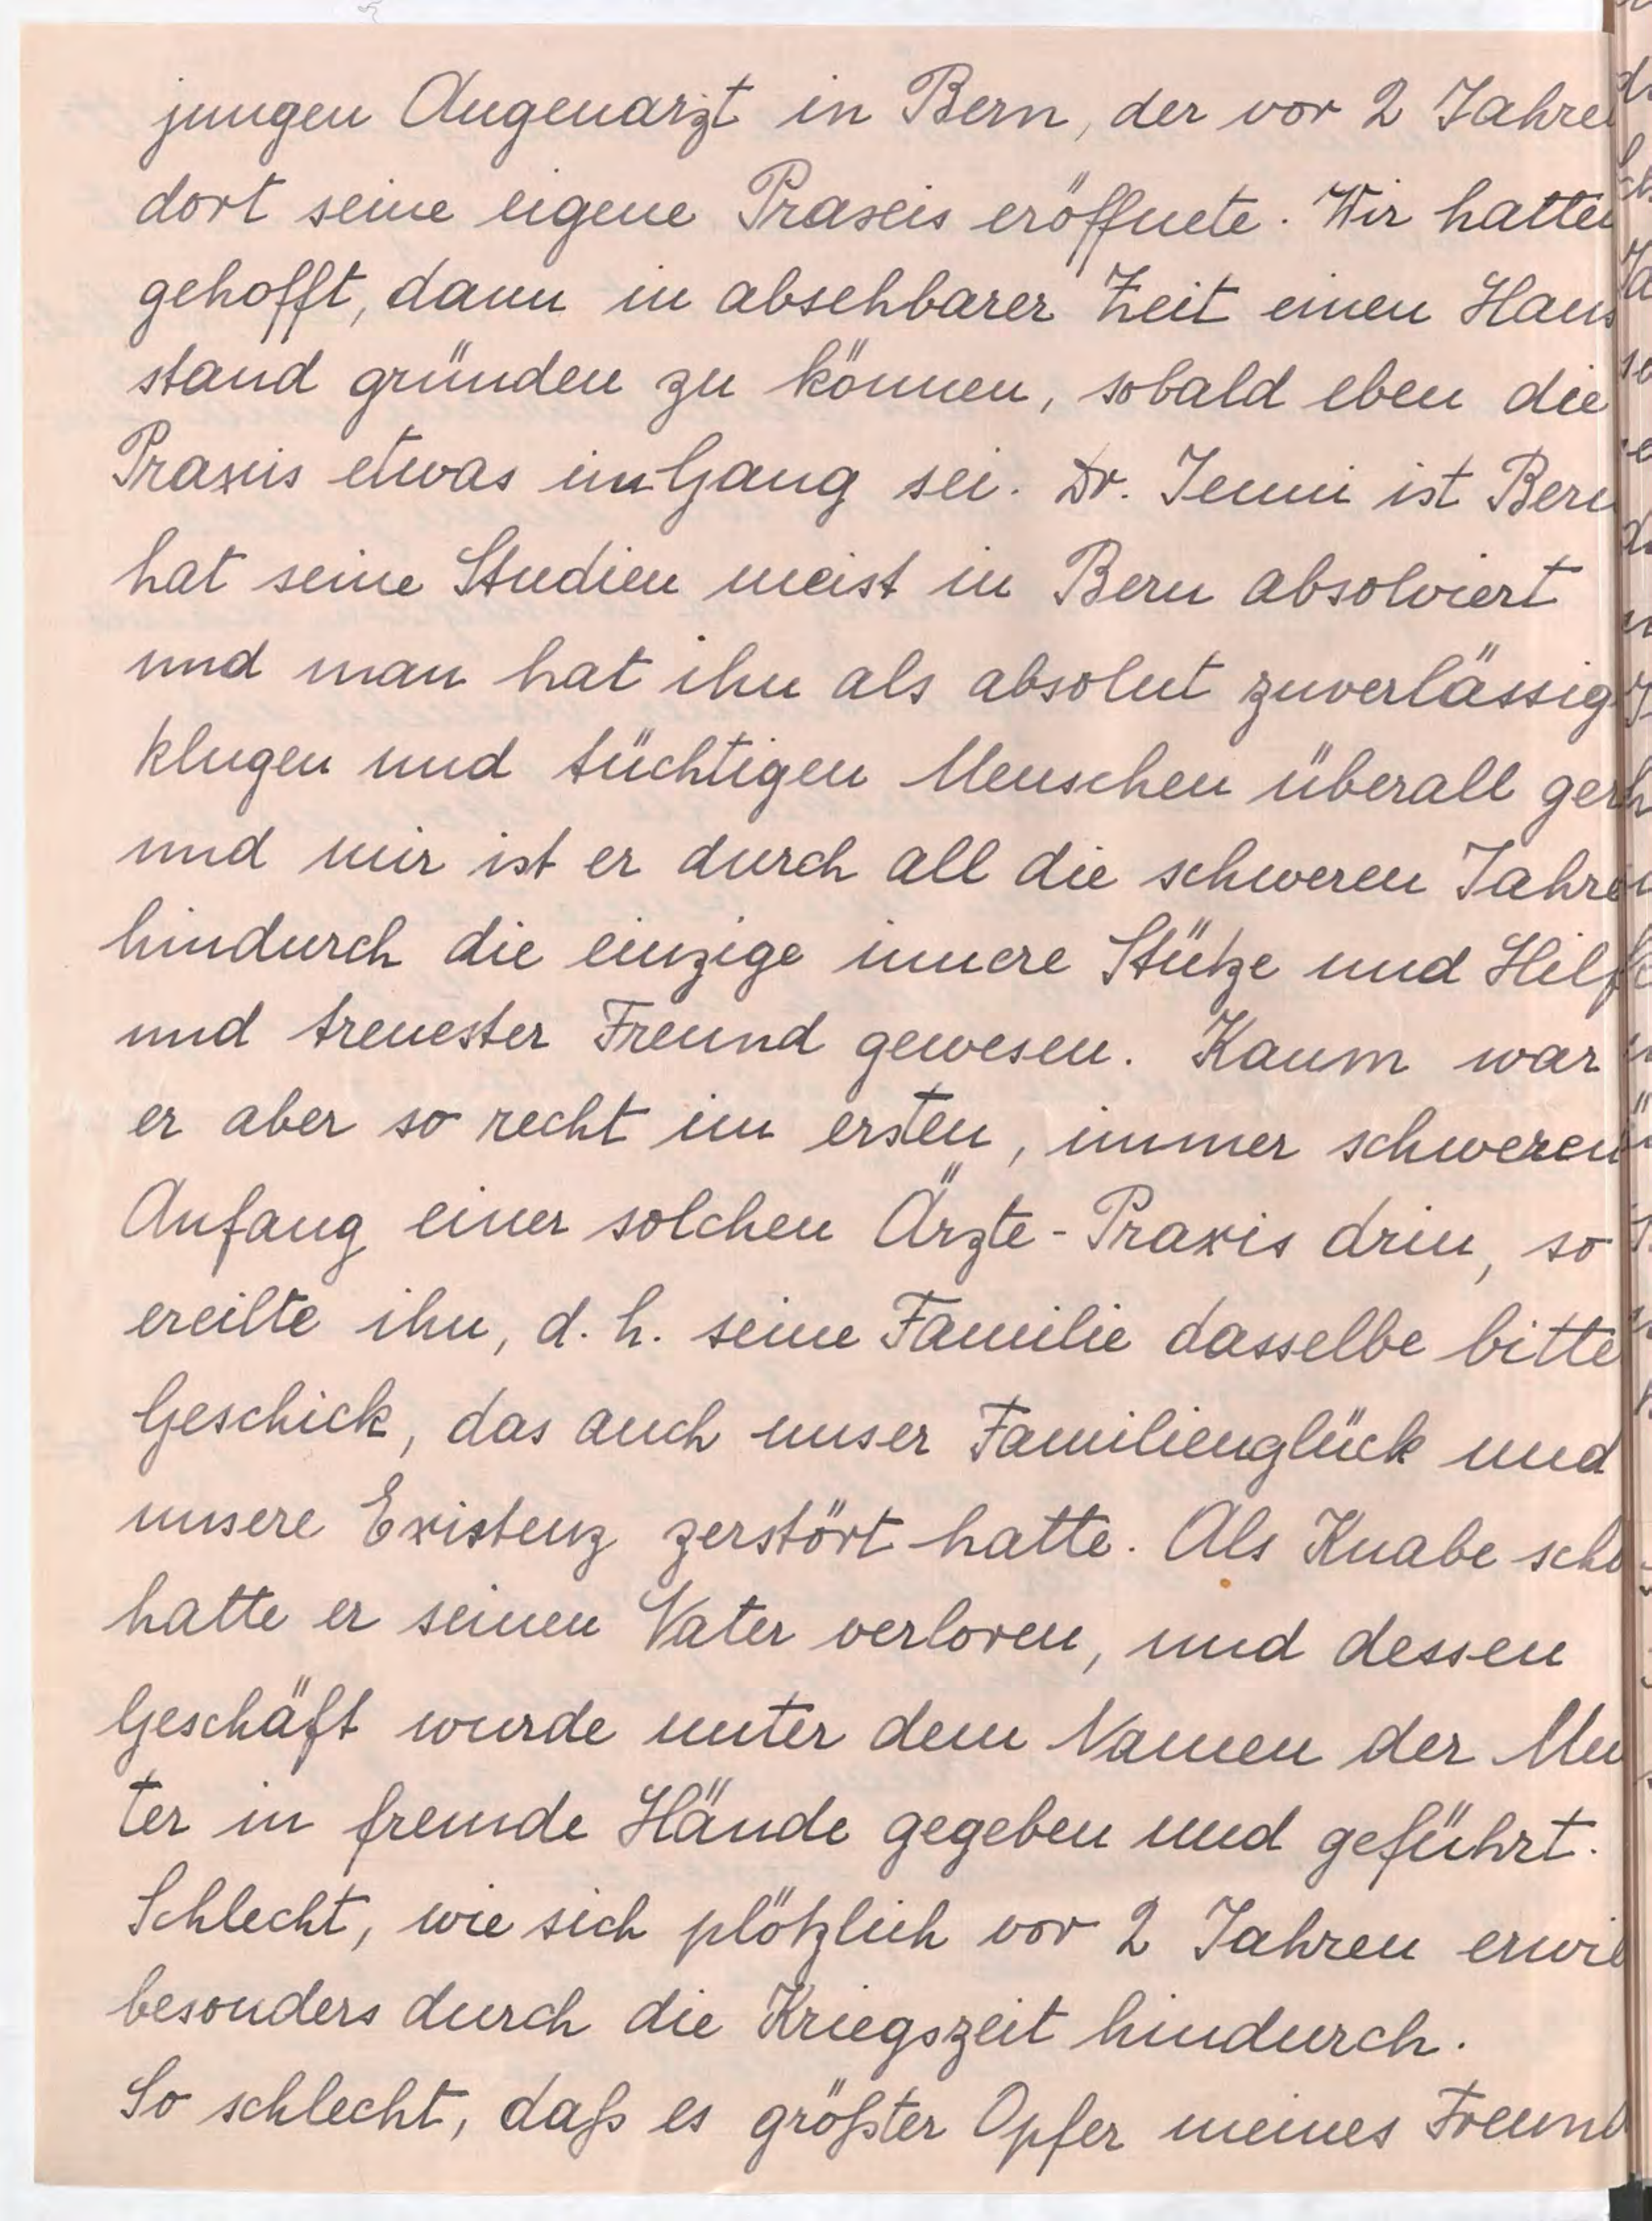 jungen Augenarzt in Bern, der vor 2 Jahre
dort seine eigene Praxis eröffnete. Wir hatten
gehofft, dann in absehbarer Zeit einen Haus
stand gründen zu können, sobald eben die
Praxis etwas im Gang sei. Dr. Jenni ist Bern
hat seine Studien meist in Bern absolviert
und man hat ihn als absolut zuverlässig
klugen und tüchtigen Menschen überall ger
und mir ist er durch all die schweren Jahre
hindurch die einzige innere Stütze und Hilf
und treuester Freund gewesen. Kaum war
er aber so recht im ersten, immer schweren
Anfang einer solchen Ärzte-Praxis drin, so
ereilte ihn, d. h. seine Familie dasselbe bitte
Geschick, das auch unser Familienglück und
unsere Existenz zerstört hatte. Als Knabe scho
hatte er seinen Vater verloren, und dessen
Geschäft wurde unter dem Namen der Mu
ter in fremde Hände gegeben und geführt.
Schlecht, wie sich plötzlich vor 2 Jahren erwi
besonders durch die Kriegszeit hindurch.
So schlecht, daß es größter Opfer meines Freund